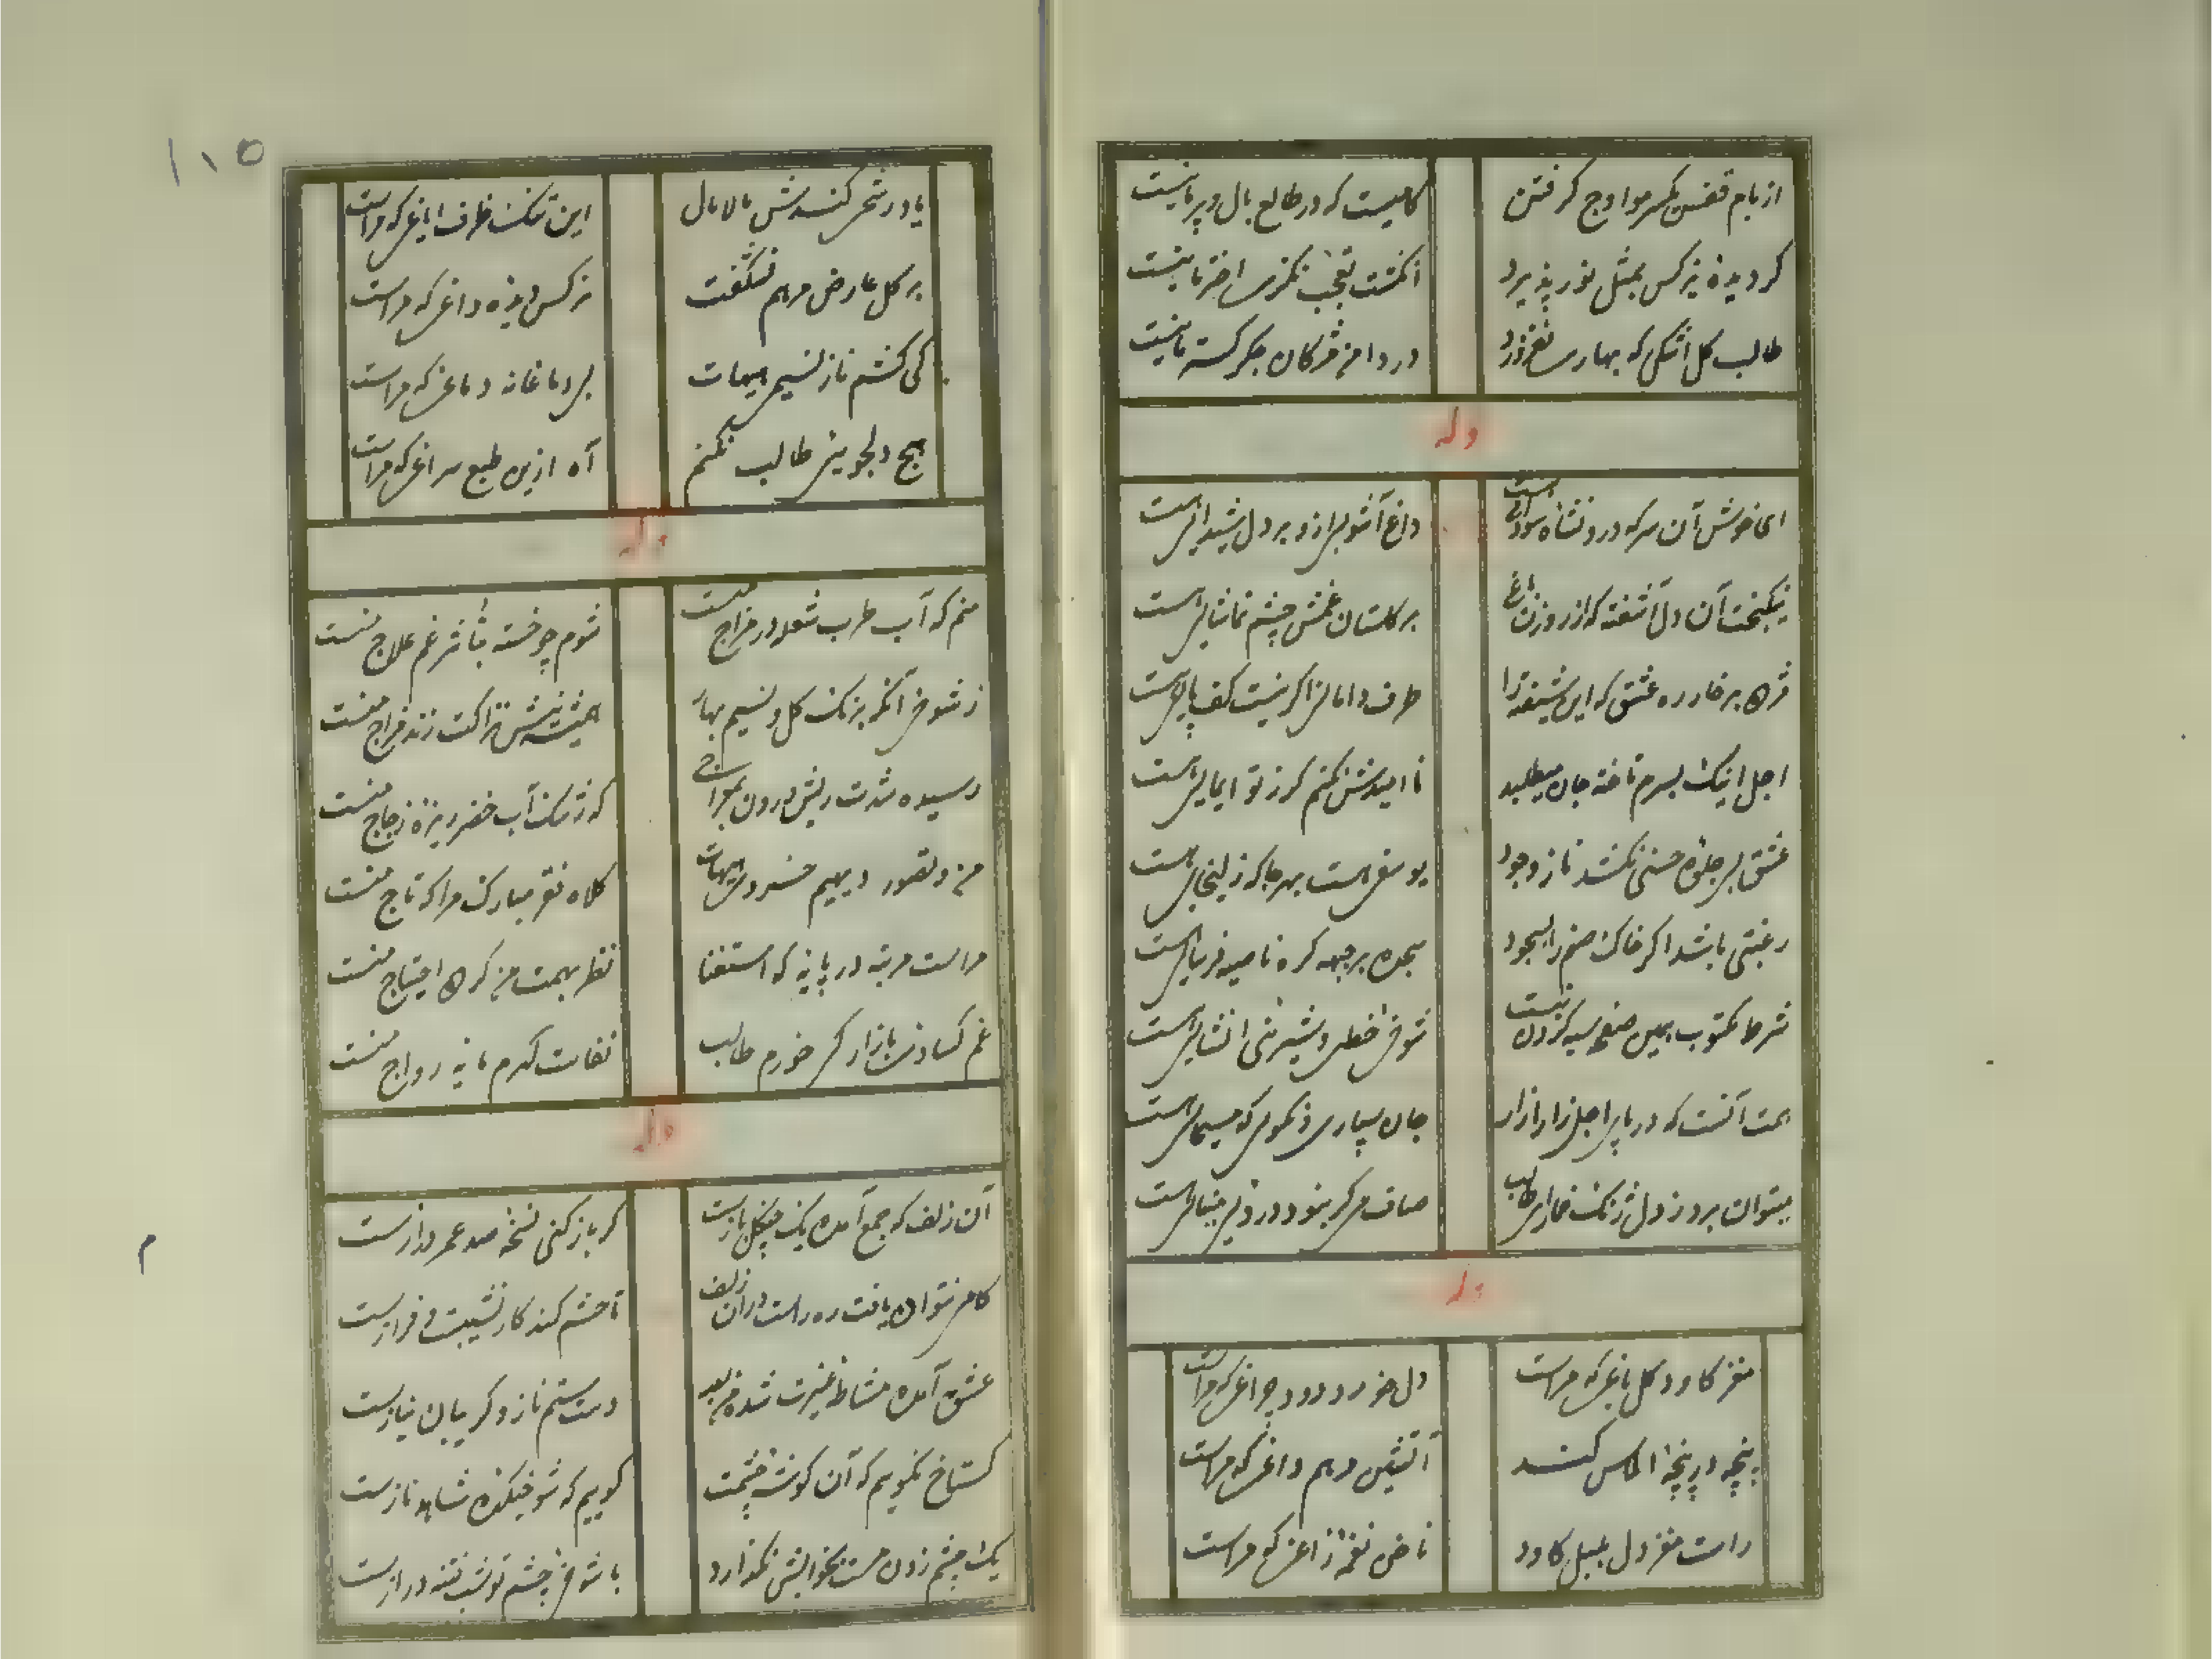 از بام قفس یکسر مو اوج گرفتن
کامیست که در طالع بال و پر ما نیست
گر دیده نرگس بمثل نور پذیرد
انگشت تعجب اختر ما نیست
طالب گل اشکی که بهارست
در دامن مژگان جگر ما نیست
وله
ای خوش آن سر که درو نشاه سودائی هست
داغ آشوبی ازو بر دل شیدائی هست
نیکبخت آن دل آشفته که از روزن داغ
بر گلستان غمش چشم تماشائی هست
مژه بر خار ره عشق که این شیفته را
طرف دامانی اگر نیست کف پائی هست
اجل اینک بسرم تاخته جان میطلبد
ناامیدش نکنم گر ز تو ایمائی هست
عشق بی جلوه حسنی نکشد ناز وجود
یوسفی هست بهر جا که زلیخائی هست
رغبتی باشد اگر خاک صنم را بسجود
سجده بر جبهه گره ناصیه فرسائی هست
شرط مکتوب همین صفحه سیه کردن نیست
شوخی خطی و شیرینی انشائی هست
همت آنست که در پای اجل زار
جان سپاری و نگوئی که مسیحائی هست
میتوان برد ز دل زنگ خماری طالب
صاف می گر نبود دردی مینائی هست
وله
مغز کاود گل باغی که مراست
دل خورد دود چراغی که مراست
پنجه در پنجه الماس کند
آتشین مرهم داغی که مراست
راست مغز دل بلبل کاود
ناخن نغمه زاغی که مراست
۱۰۵
یاد در کندش مالامال
این تنک ظرف ایاغی که مراست
بر گل عارض مرهم نشگفت
نرگس دیده داغی که مراست
کی کشم ناز نسیمی هیهات
بی دماغانه دماغی که مراست
هیچ دلجوئی طالب نکنم
آه ازین طبع سراغی که مراست
وله
منم که آب طرب شعله در مزاج منست
شوم چو خسته غم علاج منست
ز شوخی آنکه برنگ گل و نسیم بهار
همیشه نزاکت زند مزاج منست
رسیده شدت ریش درون
که آب خضر ریزه زجاج منست
من و تصور دیهیم خسروی هیهات
کلاه فقر مبارک مرا که تاج منست
مراست مرتبه در پایه که استغنا
نظر بهمت من کرده احتیاج منست
غم کسادی بازار کی خورم طالب
نفاست گهرم مایه رواج منست
وله
آن زلف که جمع آمده یک چنگل بازست
گر باز کنی نسخه صد عمر درازست
گامی نتوان یافت ره راست در آن زلف
تا چشم کند کار نشیب و فرازست
عشق آمده مشاطه غیرت شده
دست ستم ناز و گریبان نیازست
گستاخ نگویم که آن گوشه چشمت
گویم که شوخیکده شاهد نازست
یک چشم زدن مست بخوابش نگذارد
با شوخی چشم تو شب فتنه درازست
م